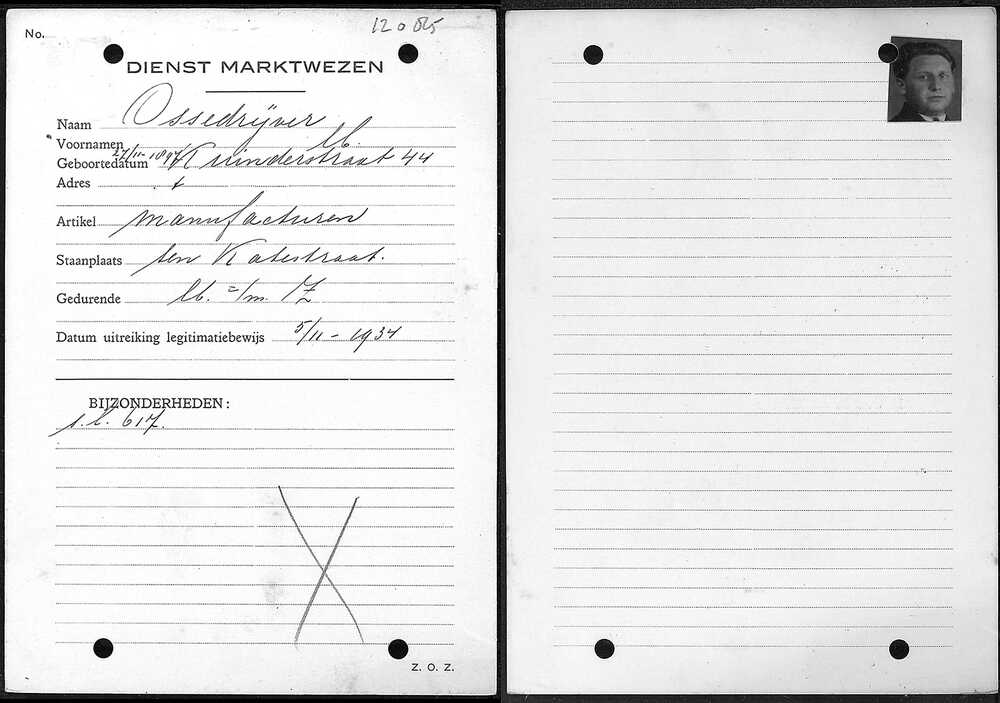 No. 12085
DIENST MARKTWEZEN
Naam Ossedrijver
Voornamen M.
Geboortedatum 27/11-1897 Kuinderstraat 44
Adres
Artikel manufacturen
Staanplaats ten Katestraat.
Gedurende
Datum uitreiking legitimatiebewijs 5/11-1934
BIJZONDERHEDEN:
s.l. 617.
Z. O. Z.